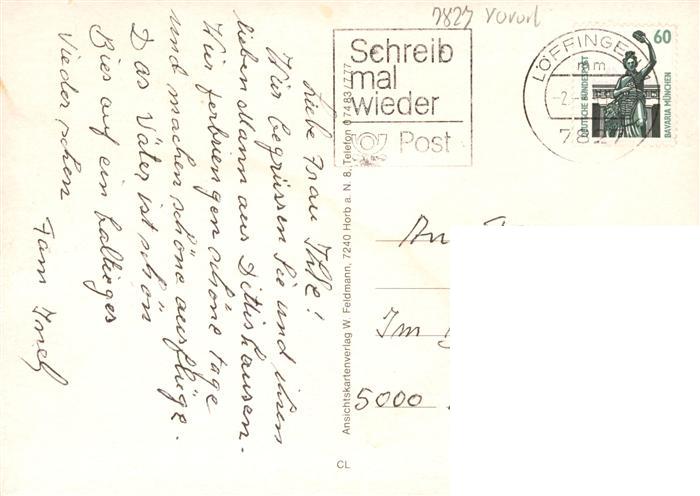 7827 Vorort
Schreib
mal
wieder
Post
LÖFFINGEN
mm
-2.-
782
60
DEUTSCHE BUNDESPOST
BAVARIA MÜNCHEN
Liebe Frau Ihle!
Wir begrüssen Sie und ihren
lieben Mann aus Dittishausen.
Wir ferbriengen schöne tage
und machen schöne ausflüge.
Das Väter ist schön
Bies auf ein baltieges
Vieder sehen
Fam
Ansichtskartenverlag W. Feldmann, 7240 Horb a. N. 8, Telefon 0 74 83 / 7 77
CL
An
Im
5000